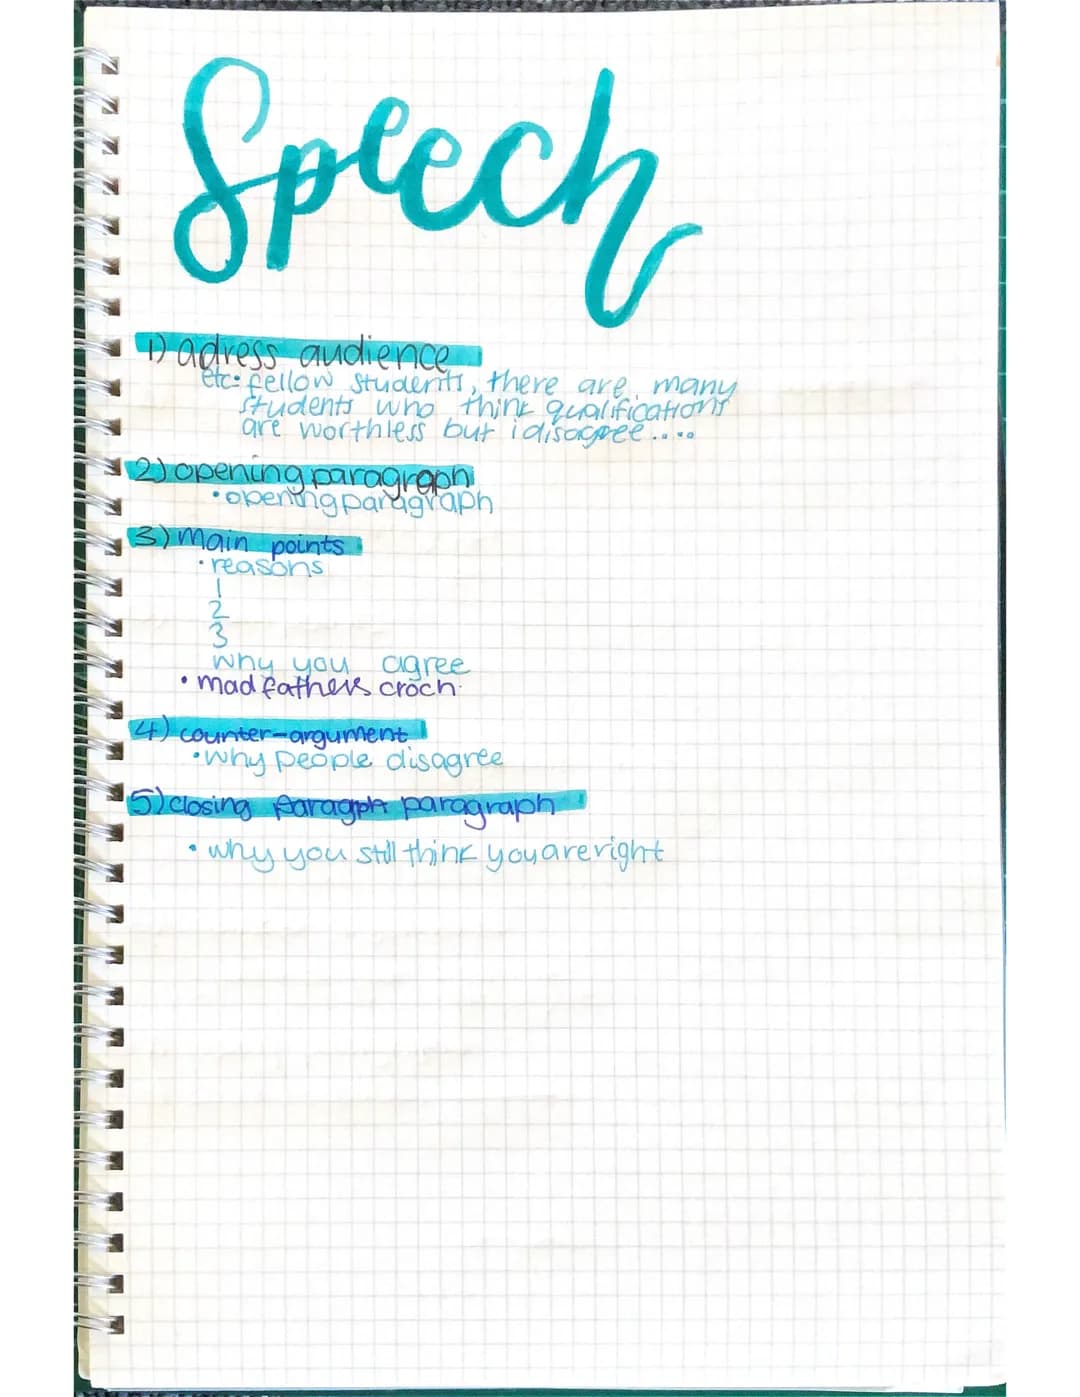 Speech
1) adress audience
etc: fellow students, there are many
students who think qualifications
are worthless but i disagree.....
2) opening paragraph
• opening paragraph
3) main points
• reasons
1
2
3
why you agree
• mad fathers croch.
4) counter-argument
• why people disagree
5) closing paragph paragraph
• why you still think you are right